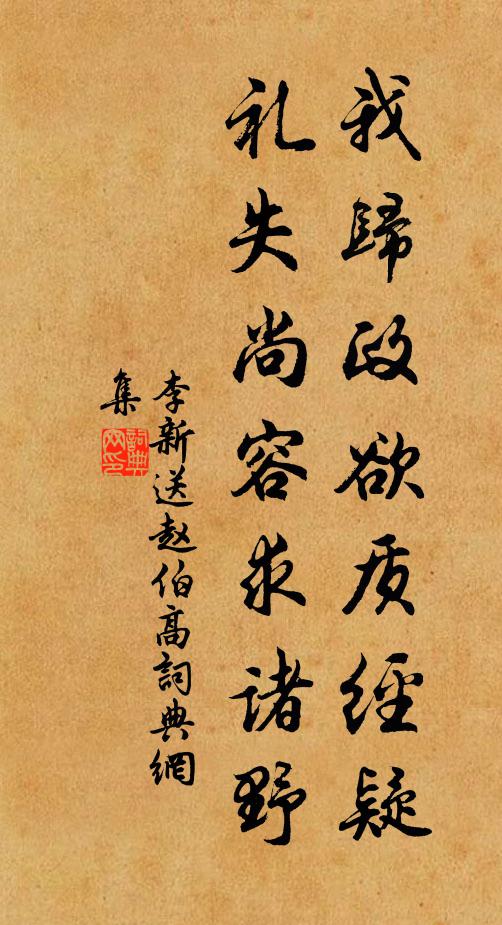 我歸政欲质經疑
礼失尚容求诸野
李新送赵伯高詞典網
集
詞典网印